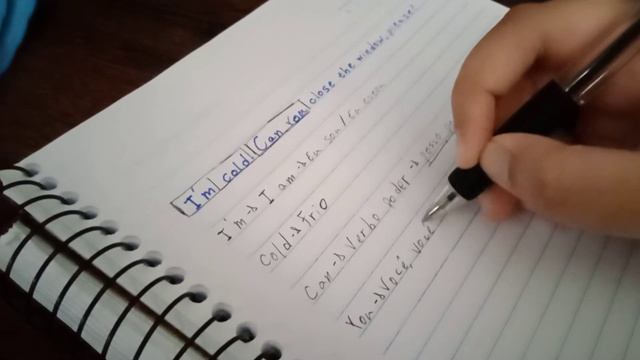 I'm cold Can you close the window, please?
I'm → I am → Eu sou / Eu estou
Cold → Frio
Can → Verbo poder → posso
You → Você, você